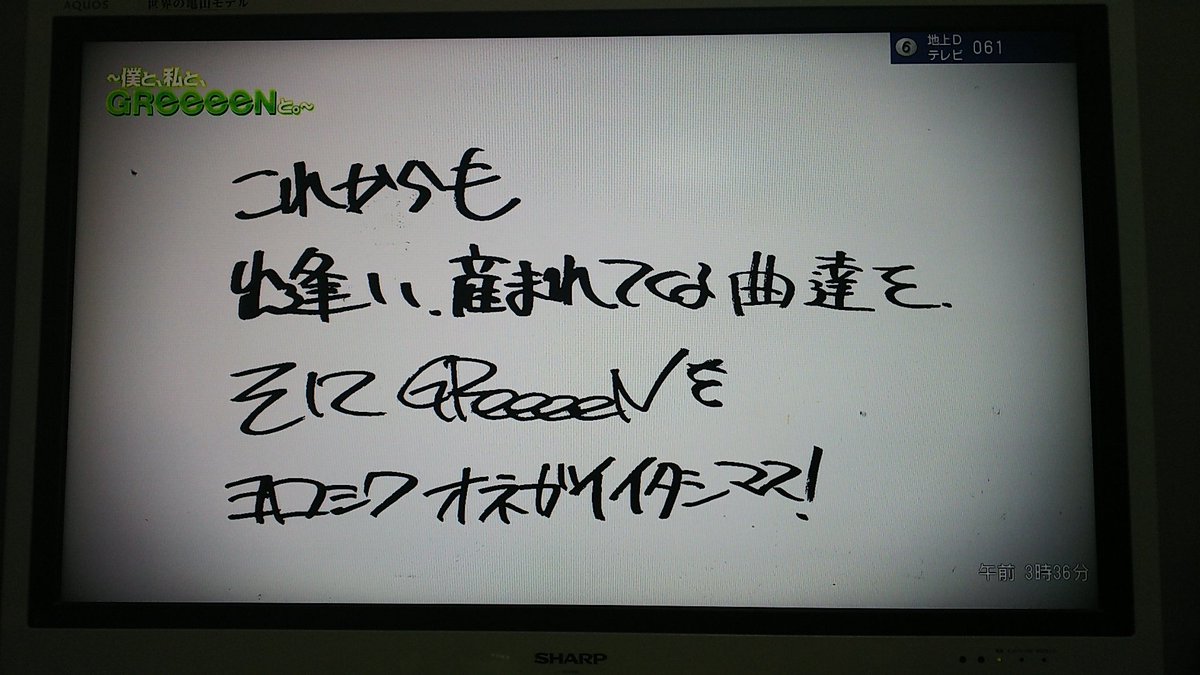 AQUOS 世界の亀山モデル
6 地上D 061
テレビ
~僕と、私と、
GReeeeNと。~
これからも
出逢い、産まれてくる曲達を、
そしに GReeeeNを
ヨロシク オネガイイタシマス!
午前 3時36分
SHARP